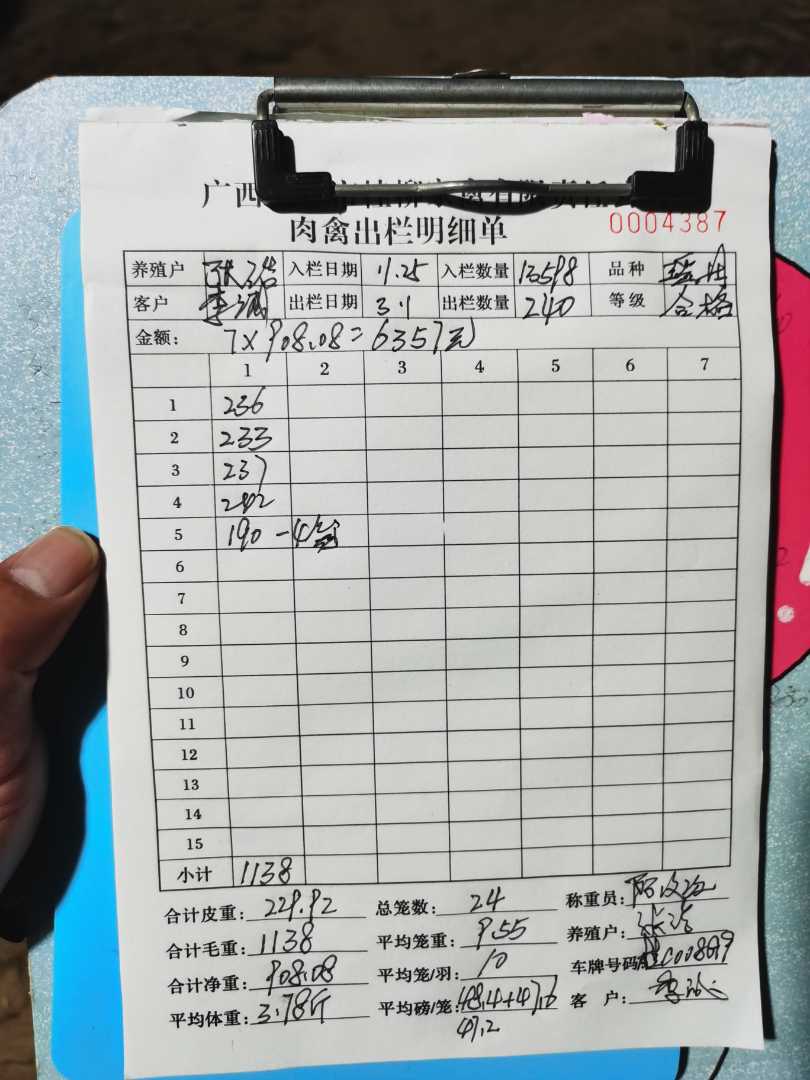 广西
0004387
肉禽出栏明细单
养殖户 张浩 入栏日期 11.25 入栏数量 13598 品种
客户 李斌 出栏日期 3.1 出栏数量 240 等级 合格
金额: 7×908.08=6357元
1 2 3 4 5 6 7
1 236
2 233
3 237
4 242
5 190 -4笼
6
7
8
9
10
11
12
13
14
15
小计 1138
合计皮重: 229.92 总笼数: 24 称重员:
合计毛重: 1138 平均笼重: 9.55 养殖户: 张浩
合计净重: 908.08 平均笼/羽: 10 车牌号码:
平均体重: 3.78斤 平均磅/笼: 48.4+47.6 客 户:
47.2